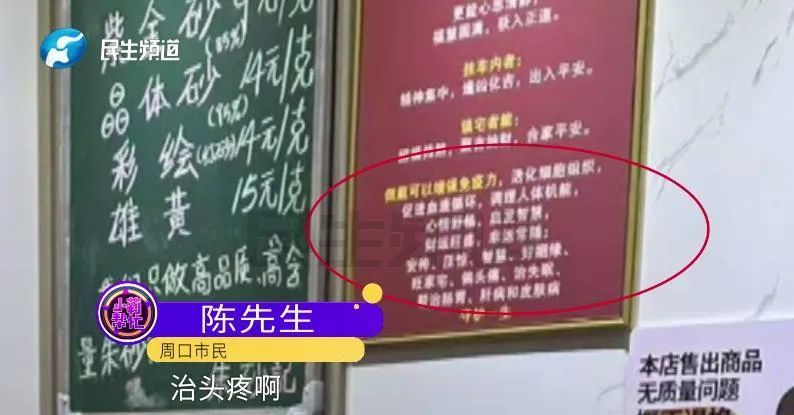 民生频道
紫金砂
(85%)
晶体砂 14元/克
(95%)
彩绘 14元/克
雄黄 15元/克
只做高品质、高含
量朱砂
更能心思清静,
福慧圆满,获入正道。
挂车内者:
精神集中,逢凶化吉,出入平安。
镇宅者能:
合家平安。
佩戴可以增强免疫力,活化细胞组织,
促进血液循环,调理人体机能,
心情舒畅,启发智慧,
财运旺盛,幸运常随;
安神、压惊、智慧、好姻缘、
旺家宅、偏头痛、治失眠、
肝病和皮肤病
守护一生
本店售出商品
无质量问题
小莉帮忙
陈先生
周口市民
治头疼啊